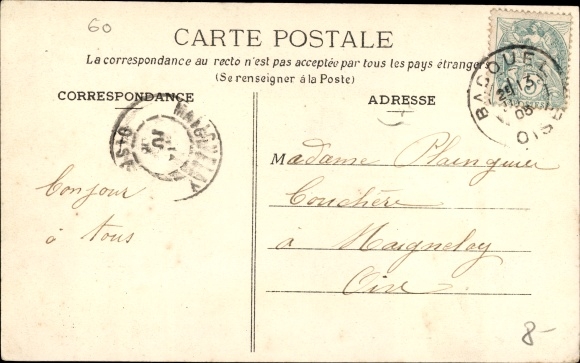 60
CARTE POSTALE
La correspondance au recto n'est pas acceptée par tous les pays étrangers
(Se renseigner à la Poste)
CORRESPONDANCE
ADRESSE
MAIGNELAY
OISE
BACOUEL
OISE
Bonjour
à tous
Madame Plainguier
Couchère
à Maignelay
Oise
8-